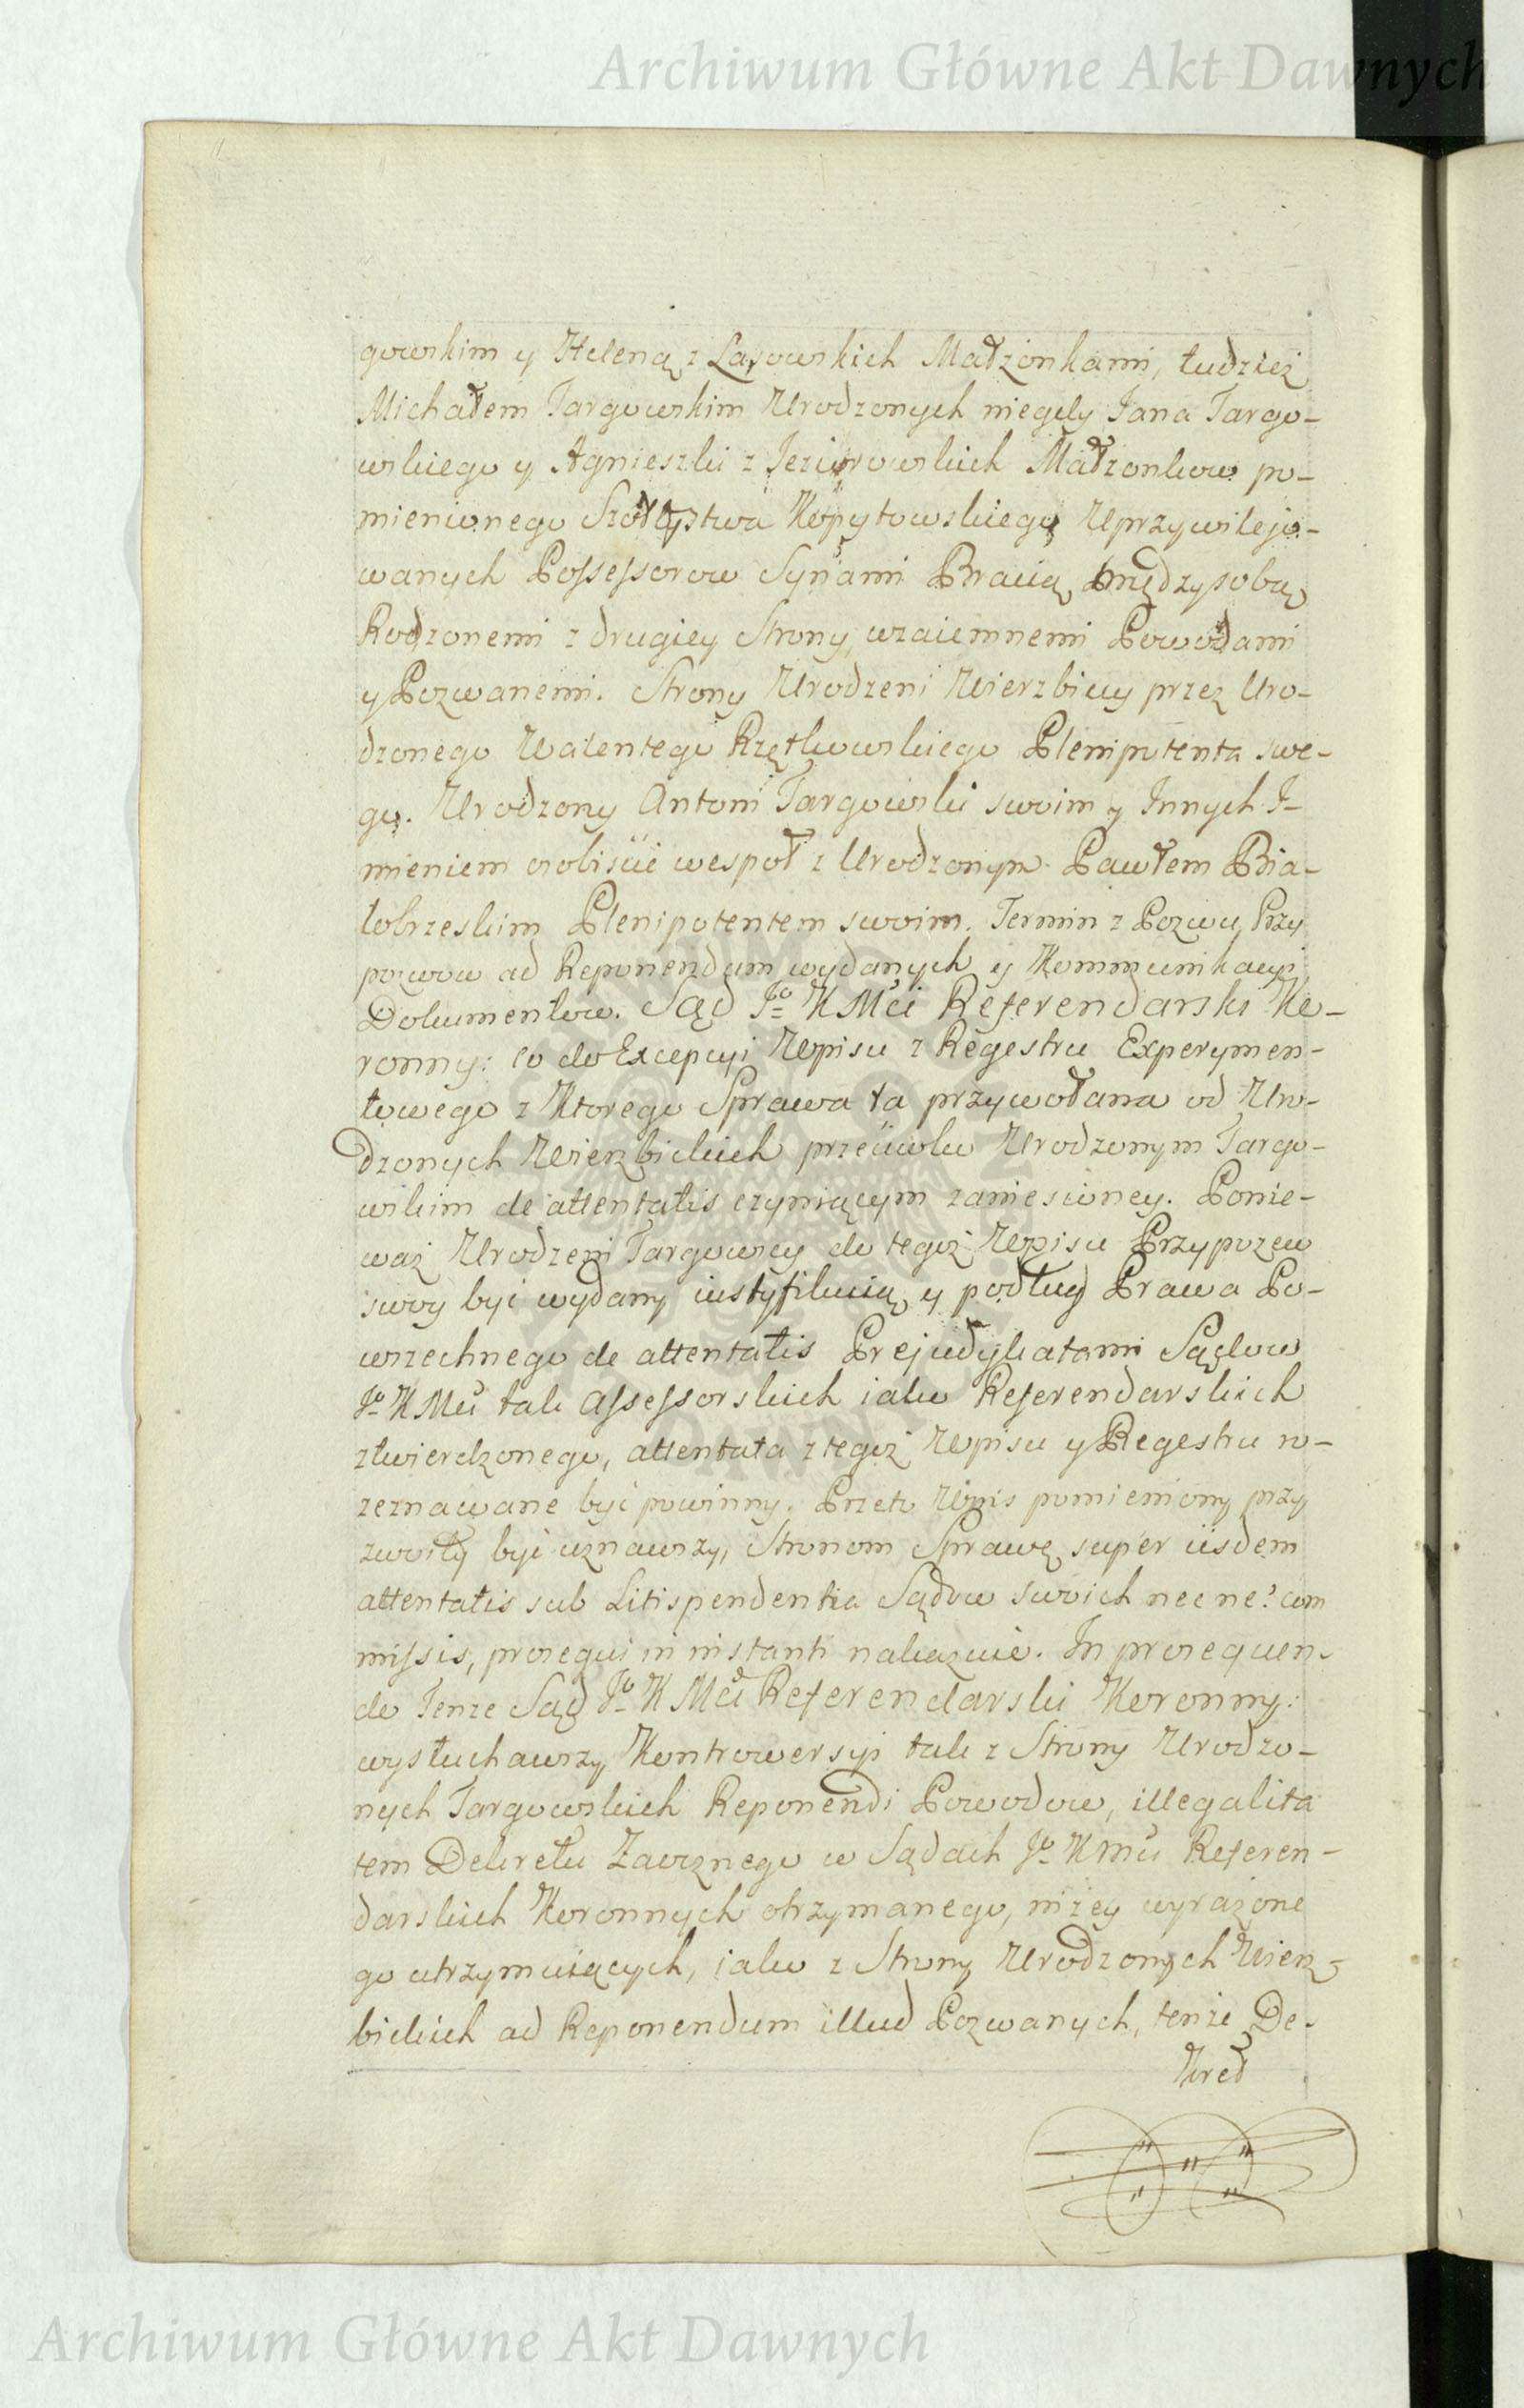 Archiwum Główne Akt Dawnych
gowskim y Heleną z Lasowskich Małżonkami, tudzież
Michałem Targowskim Urodzonych niegdy Jana Targo-
wskiego y Agnieszki z Jeziorowskich Małżonkow po-
mienionego Szołtystwa Kopytowskiego Uprzywilejo-
wanych Possessorow Synami Bracią między sobą
Rodzonemi z drugiey Strony, wzaiemnemi Powodami
y Pozwanemi. Strony Urodzeni Wierzbiccy przez Uro-
dzonego Walentego Rzętkowskiego Plenipotenta swe-
go. Urodzony Antoni Targowski swoim y Innych I-
mieniem osobiście wespoł z Urodzonym Pawłem Bia-
łobrzeskim Plenipotentem swoim. Termin z Pozwu, Przy
pozwow ad Reponendum wydanych y Kommunikacyi
Dokumentow. Sąd Jo KMci Referendarski Ko-
ronny: co do Excepcyi Wpisu z Regestru Experymen-
towego z Ktorego Sprawa ta przywołana od Uro-
dzonych Wierzbickich przeciwko Urodzonym Targo-
wskim de attentatis czyniącym zaniesioney. Ponie-
waż Urodzeni Targowscy do tegoż Wpisu Przypozew
swoy być wydany iustyfikuią, y podług Prawa Po-
wszechnego de attentatis Prejudykatami Sądow
Jo KMci tak Assessorskich iako Referendarskich
ztwierdzonego, attentata z tegoż Wpisu y Regestru ro-
zeznawane być powinny. Przeto Wpis pomieniony przy
zwoity być uznawszy, Stronom Sprawę super iisdem
attentatis sub Litispendentia Sądow swoich nec ne? com
missis, prosequi in instanti nakazuie. In prosequen-
do Tenze Sąd Jo KMci Referendarski Koronny:
wysłuchawszy Kontrowersyi tak z Strony Urodzo-
nych Targowskich Reponendi Powodow, illegalita
tem Dekretu Zaocznego w Sądach Jo KMci Referen-
darskich Koronnych otrzymanego, niżey wyrażone
go utrzymuiących, iako z Strony Urodzonych Wierz-
bickich ad Reponendum illud Pozwanych, tenże De-
kret
Archiwum Główne Akt Dawnych